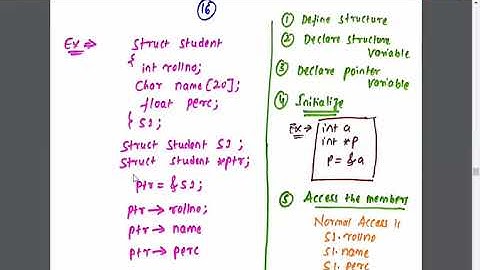 16
Ex ⇒ Struct Student
{
int rollno;
Char name[20];
float perc;
} S1;
Struct Student S1;
Struct Student *ptr;
ptr = &S1;
ptr → rollno;
ptr → name
ptr → perc
① Define Structure
② Declare Structure
Variable
③ Declare pointer
Variable
④ Initialize
Ex ⇒ int a
int *p
p = &a
⑤ Access the members
Normal Access is
S1.rollno
S1.name
S1.perc